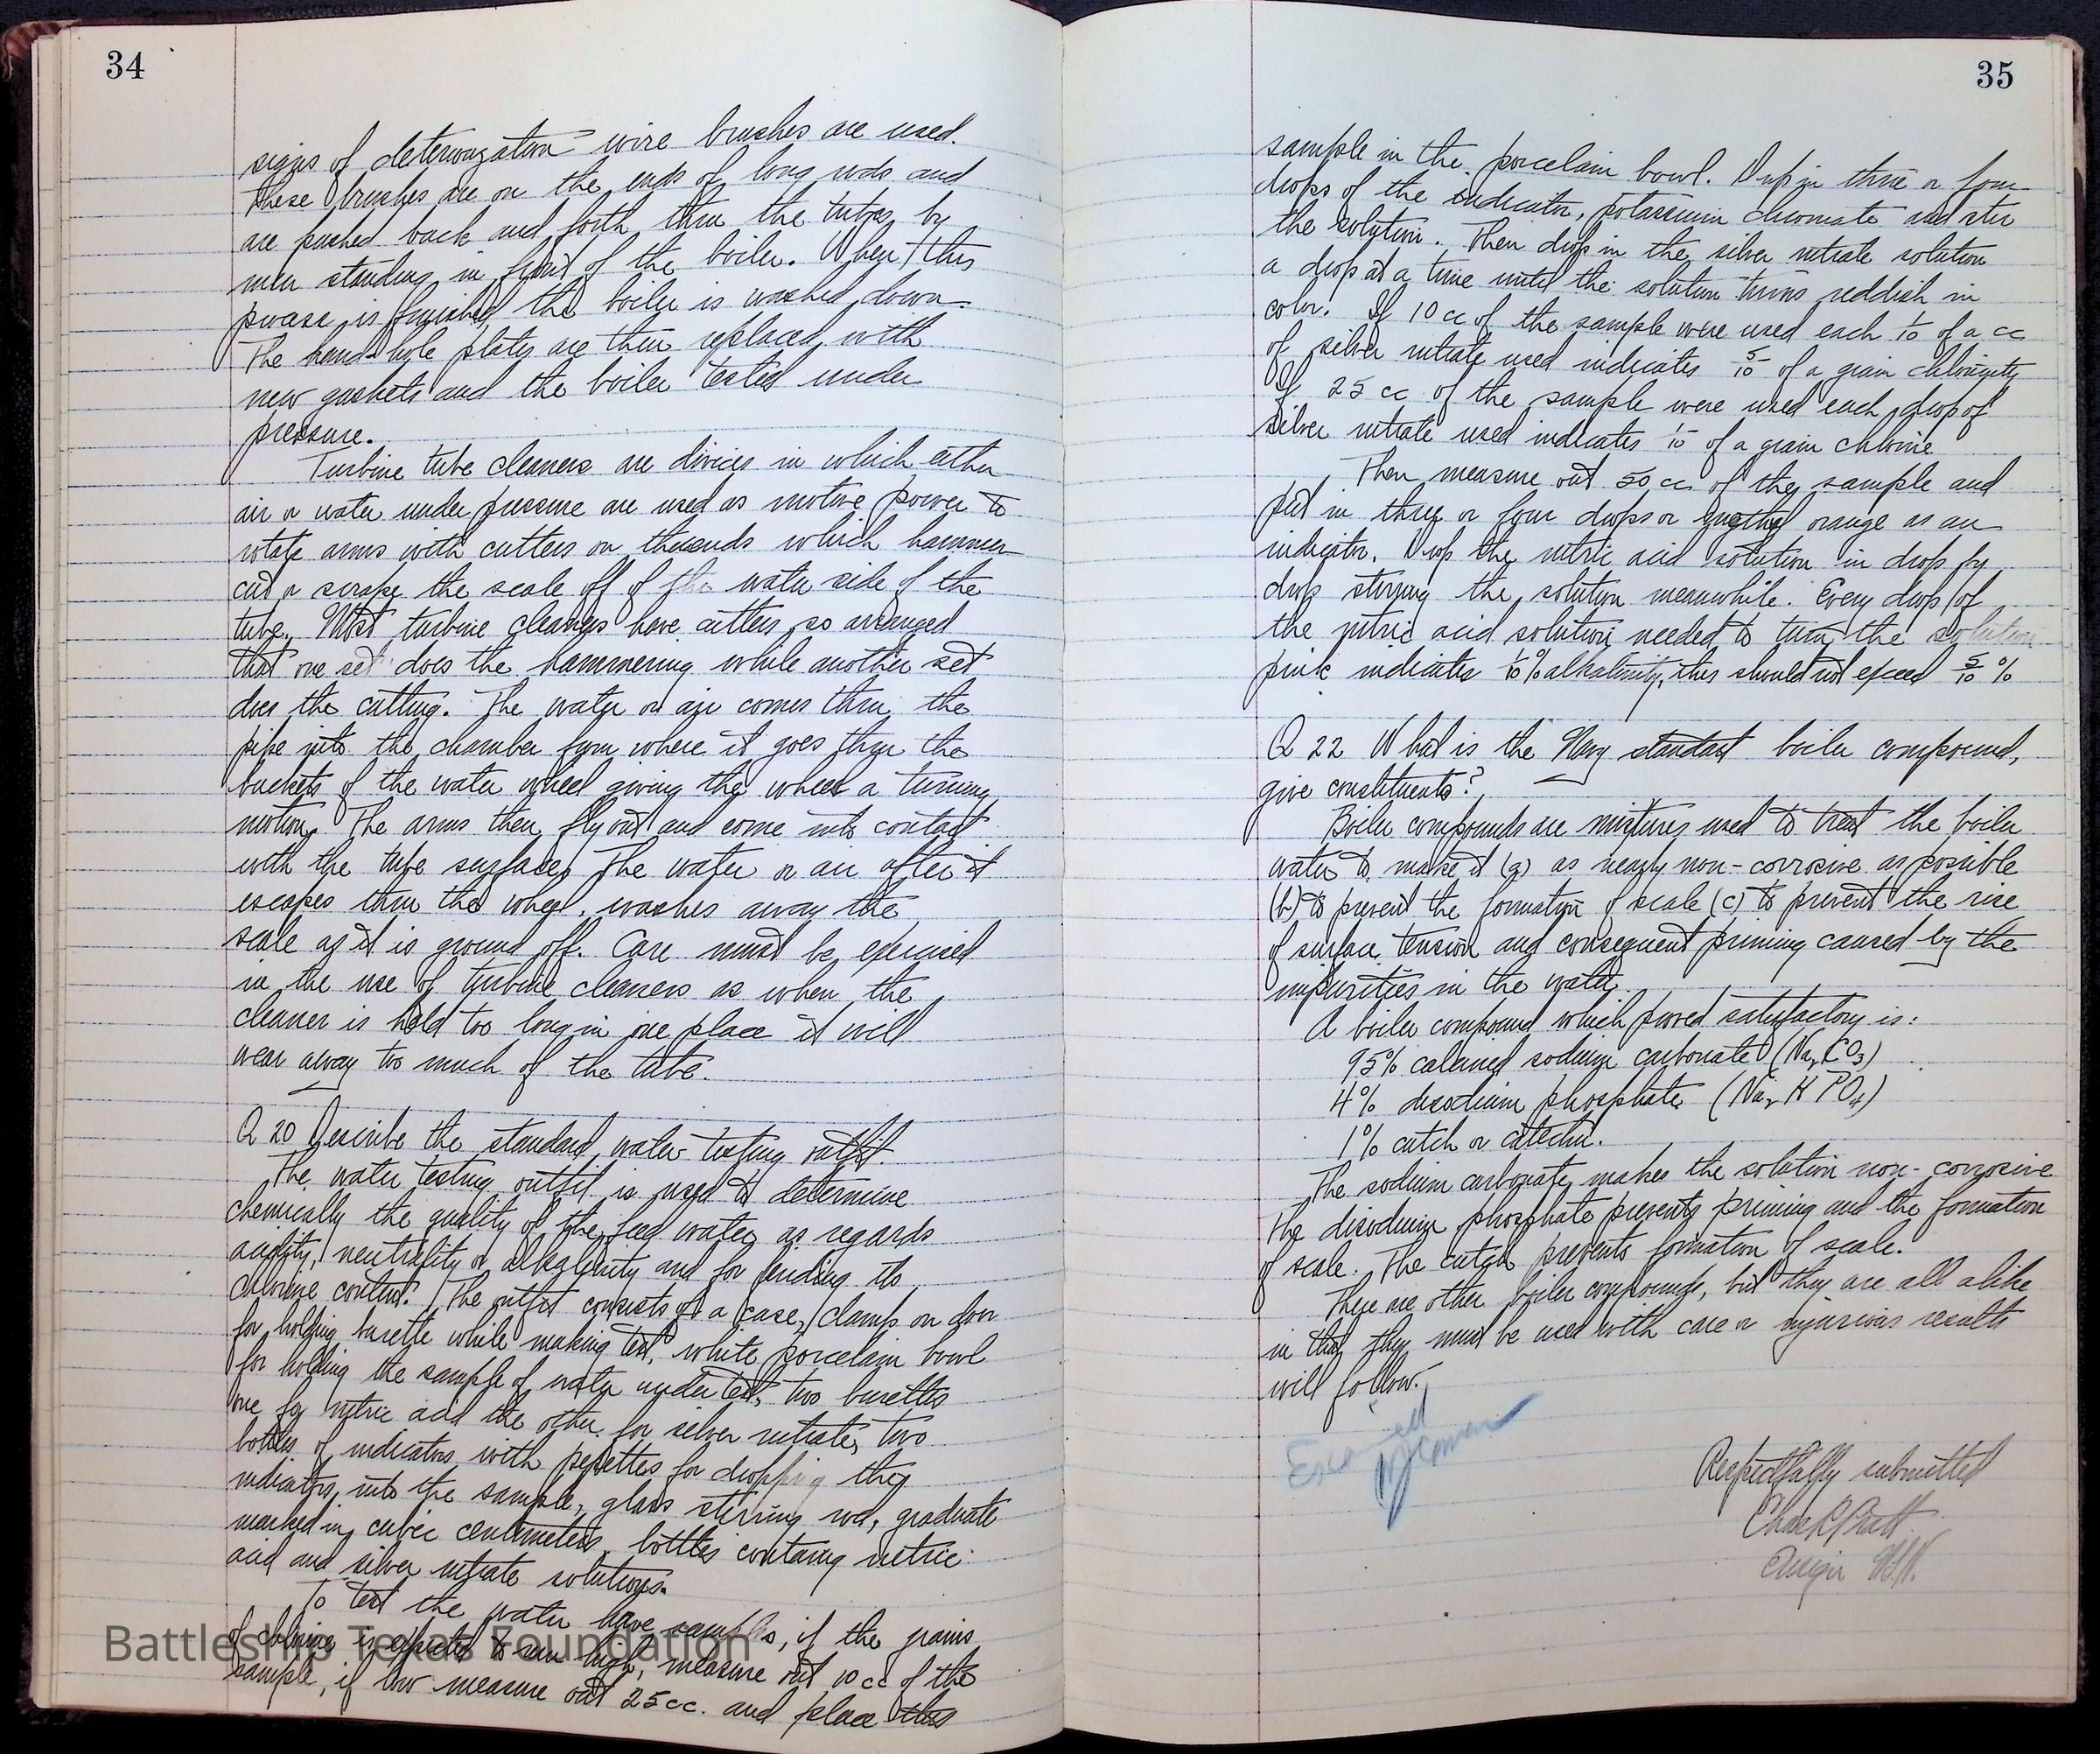 34
signs of deteriozation wire brushes are used.
These brushes are on the ends of long rods and
are pushed back and forth thru the tubes by
men standing in front of the boiler. When this
process is finished the boiler is washed down.
The hand-hole plates are then replaced with
new gaskets and the boiler tested under
pressure.
Turbine tube cleaners are divices in which either
air or water under pressure are used as motive power to
rotate arms with cutters on the ends which hammer
cut or scrape the scale off of the water side of the
tube. Most turbine cleaners have cutters so arranged
that one set does the hammering while another set
does the cutting. The water or air comes thru the
pipe into the chamber from where it goes thru the
buckets of the water wheel giving the wheel a turning
motion. The arms then fly out and come into contact
with the tube surface. The water or air after it
escapes thru the wheel, washes away the
scale as it is ground off. Care must be exercised
in the use of turbine cleaners as when the
cleaner is held too long in one place it will
wear away too much of the tube.
Q 20 Describe the standard water testing outfit.
The water testing outfit is used to determine
chemically the quality of the feed water as regards
acidity, neutrality or alkalinity and for finding its
chlorine content. The outfit consists of a case, clamp on door
for holding burette while making test, white porcelain bowl
for holding the sample of water under test, two burettes
one for nitric acid the other for silver nitrate, two
bottles of indicators with pipettes for dropping the
indicators into the sample, glass stirring rod, graduate
marked in cubic centimeters, bottles containg nitric
acid and silver nitrate solutions.
To test the water have samples, if the grains
of chlorine is expected to run high, measure out 10 cc of the
sample, if low measure out 25 cc. and place this
Battleship Texas Foundation
35
sample in the porcelain bowl. Drip in three or four
drops of the indicator, potassium chromate and stir
the solution. Then drop in the silver nitrate solution
a drop at a time until the solution turns reddish in
color. If 10 cc of the sample were used each 1/10 of a cc
of silver nitrate used indicates 5/10 of a grain chlorinity
If 25 cc of the sample were used each drop of
silver nitrate used indicates 1/10 of a grain chlorine
Then measure out 50 cc of the sample and
put in three or four drops or methyl orange as an
indicator. Drop the nitric acid solution in drop by
drop stirring the solution meanwhile. Every drop of
the nitric acid solution needed to turn the solution
pink indicates 1/10 % alkalinity, this should not exceed 5/10 %
Q 22 What is the Navy standart boiler compound,
give constituents?
Boiler compounds are mixtures used to treat the boiler
water to make it (a) as nearly non-corrosive as possible
(b) to prevent the formation of scale (c) to prevent the rise
of surface tension and consequent priming caused by the
impurities in the water.
A boiler compound which proved satisfactory is:
95% calcined sodium carbonate (Na₂CO₃)
4% disodium phosphate (Na₂HPO₄)
1% cutch or catechu.
The sodium carbonate makes the solution non-corrosive
The disodium phosphate prevents priming and the formation
of scale. The cutch prevents formation of scale.
There are other boiler compounds, but they are all alike
in that they must be used with care or injurious results
will follow.
Respectfully submitted
Ensign USN.